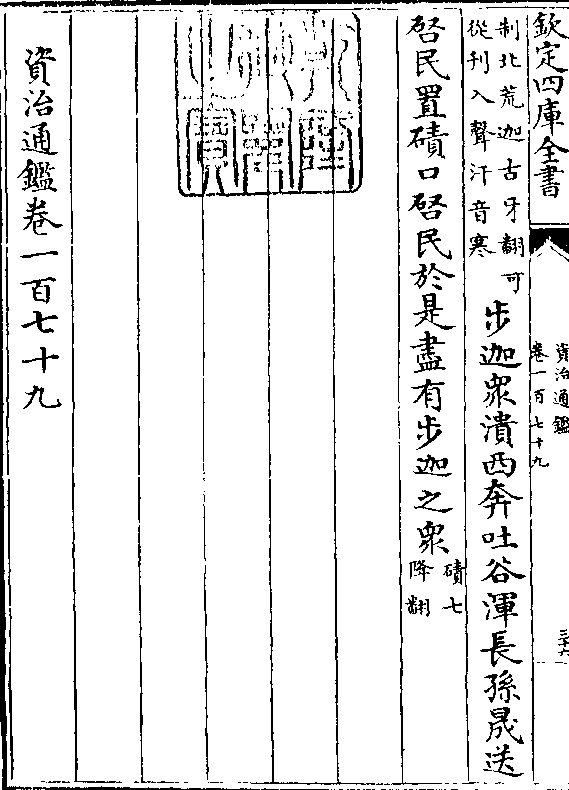 欽定四庫全書
資治通鑑
卷一百七十九
三十六
制北荒迦古牙翻可
從刋入聲汗音寒
步迦衆潰西奔吐谷渾長孫晟送
啓民置磧口啓民於是盡有步迦之衆
磧七
降翻
乾隆
御覽
之寶
資治通鑑卷一百七十九